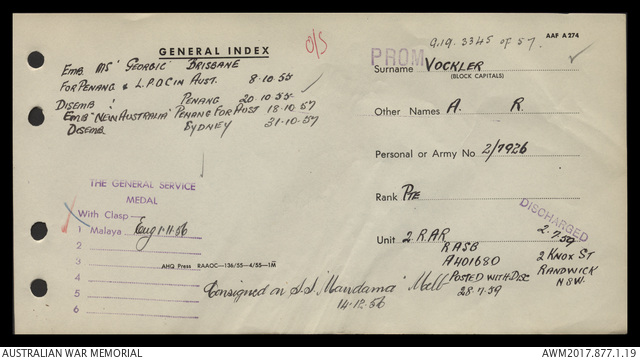 GENERAL INDEX
O/S
EMB. MS 'GEORGIC' BRISBANE
FOR PENANG & L.P.O.C IN AUST. 8·10·55
DISEMB: PENANG 20·10·55
EMB "NEW AUSTRALIA" PENANG FOR AUST 18·10·57
DISEMB. SYDNEY 31·10·57
THE GENERAL SERVICE
MEDAL
With Clasp
1 Malaya Eng 1·11·56
2
3
4
5
6
AHQ Press RAAOC—136/55—4/55—1M
Consigned on S.S. 'Mandama' Melb
14·12·56
AAF A274
PROM 3345 of 57.
Surname VOCKLER
(BLOCK CAPITALS)
Other Names A. R.
Personal or Army No 2/7926
Rank PTE
Unit 2 RAR
RASB
A401680
POSTED WITH DISC
28·7·59
DISCHARGED
2·7·59
2 KNOX ST
RANDWICK
NSW.
AUSTRALIAN WAR MEMORIAL
AWM2017.877.1.19